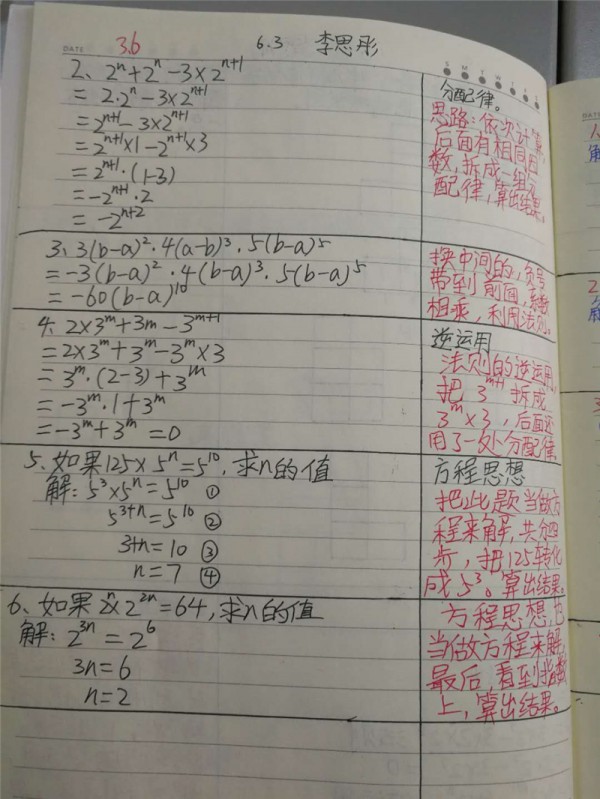 DATE 3.6 6.3 李思彤
S M T W T F S
2、2ⁿ+2ⁿ-3×2ⁿ⁺¹
=2·2ⁿ-3×2ⁿ⁺¹
=2ⁿ⁺¹-3×2ⁿ⁺¹
=2ⁿ⁺¹×1-2ⁿ⁺¹×3
=2ⁿ⁺¹·(1-3)
=-2ⁿ⁺¹·2
=-2ⁿ⁺²
分配律。
思路:依次计算,
后面有相同因
数,拆成一组分
配律,算出结果。
3、3(b-a)²·4(a-b)³·5(b-a)⁵
=-3(b-a)²·4(b-a)³·5(b-a)⁵
=-60(b-a)¹⁰
换中间的,负号
带到前面,系数
相乘,利用法则。
4、2×3ᵐ+3m-3ᵐ⁺¹
=2×3ᵐ+3ᵐ-3ᵐ×3
=3ᵐ·(2-3)+3ᵐ
=-3ᵐ·1+3ᵐ
=-3ᵐ+3ᵐ=0
逆运用
法则的逆运用,
把3ᵐ⁺¹拆成
3ᵐ×3,后面还
用了一处分配律
5、如果125×5ⁿ=5¹⁰,求n的值
解:5³×5ⁿ=5¹⁰ ①
5³⁺ⁿ=5¹⁰ ②
3+n=10 ③
n=7 ④
方程思想
把此题当做方
程来解,共分四
步,把125转化
成5³。算出结果。
6、如果2ⁿ×2²ⁿ=64,求n的值
解:2³ⁿ=2⁶
3n=6
n=2
方程思想,也
当做方程来解,
最后,看到指数
上,算出结果。
DATE